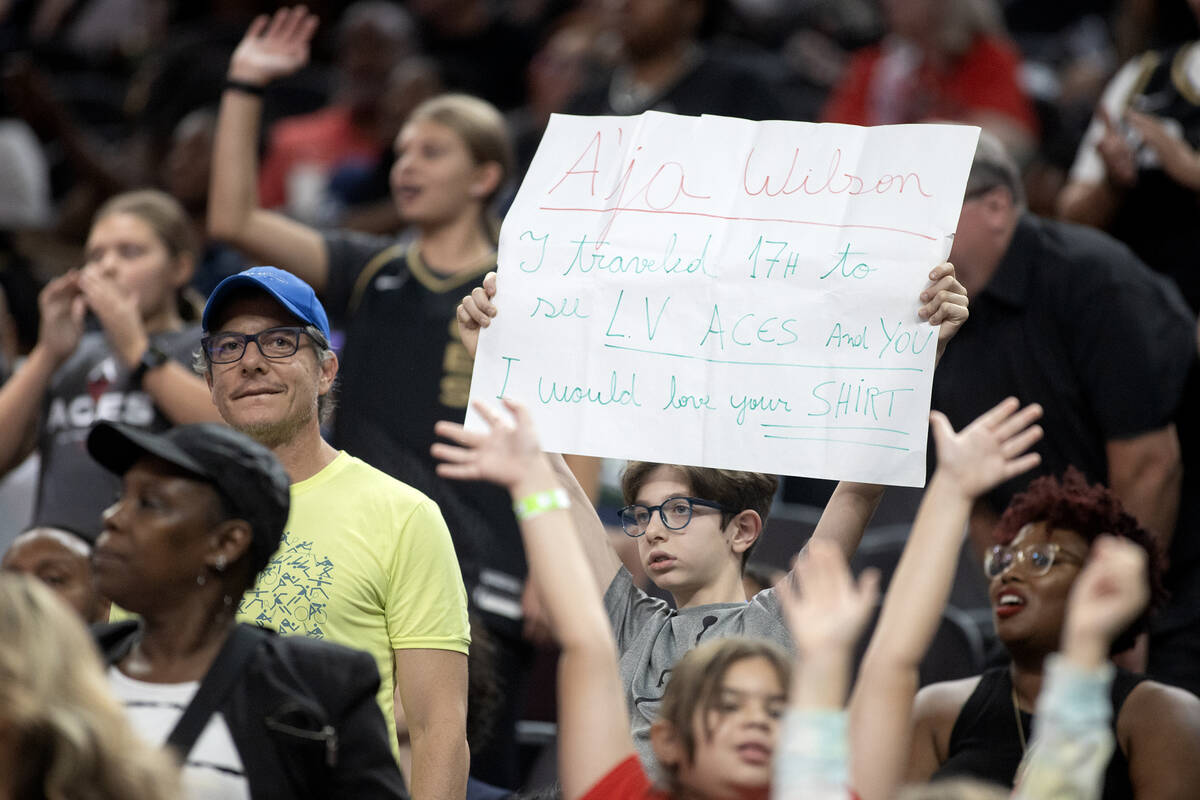 A'ja Wilson
I traveled 17H to
see L.V ACES And YOU
I would love your SHIRT
ACES